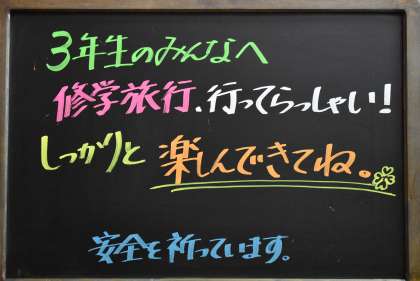 3年生のみんなへ
修学旅行.行ってらっしゃい!
しっかりと 楽しんできてね。
安全を祈っています。